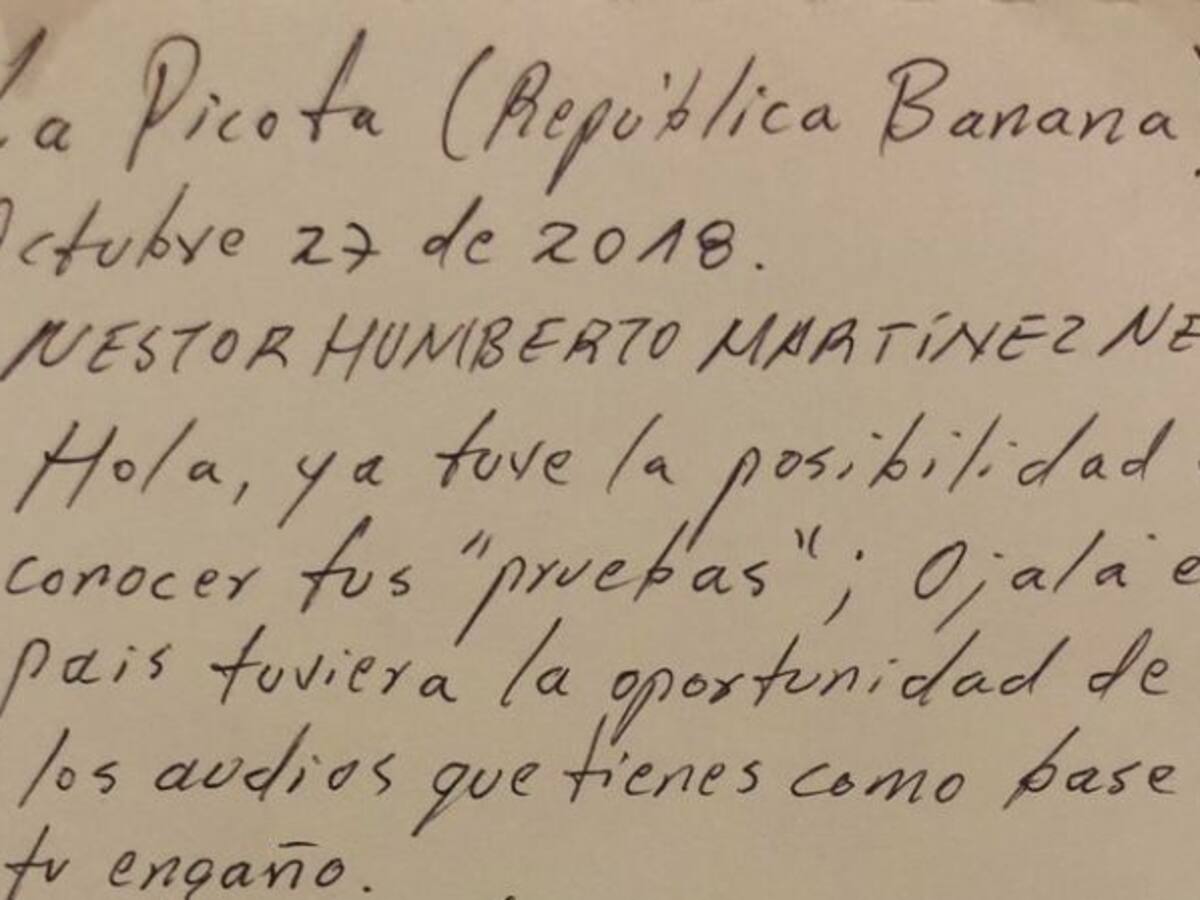 La Picota (República Banana)
Octubre 27 de 2018.
NESTOR HUMBERTO MARTÍNEZ NE
Hola, ya tuve la posibilidad
conocer tus "pruebas"; Ojalá e
pais tuviera la oportunidad de
los audios que tienes como base
tu engaño.